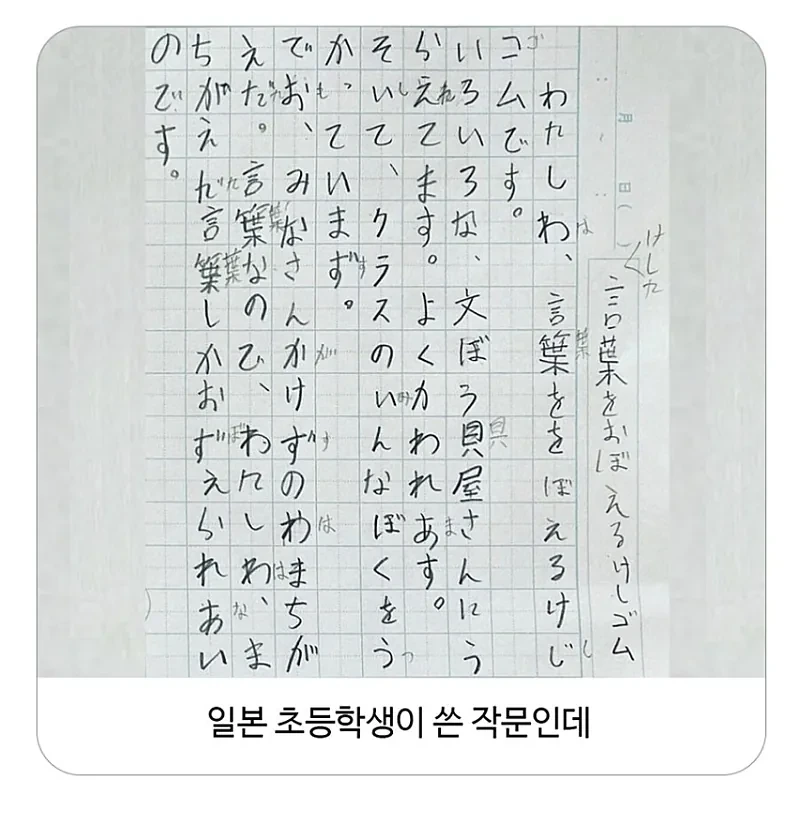 月　日(　)
言葉をおぼえるけしゴム
けした
わたしわ、言葉ををぼえるけじ
は 葉 し
コムです。
ゴ
いろいろな、文ぼう貝屋さんにう
具
らえてます。よくかわれあす。
れ ま
そいて、クラスのいんなぼくをう
し み っ
か、ていまず。
っ す
でお、みなさんかけずのわまちが
も が す は
えだ。言葉なので、わたしわ、ま
た 葉 は
ちがえだ言葉しかおずえられあい
た 葉 ぼ な
のです。
일본 초등학생이 쓴 작문인데